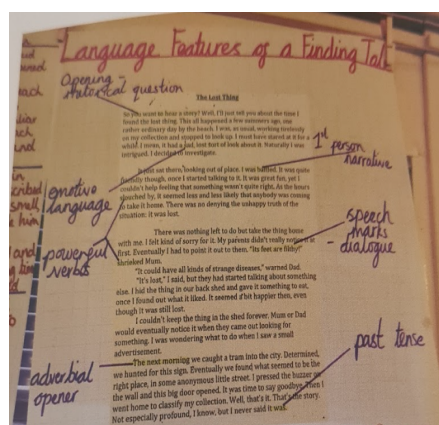 Language Features of a Finding Tale
Opening -
rhetorical question
The Lost Thing
So you want to hear a story? Well, I'll just tell you about the time I
found the lost thing. This all happened a few summers ago, one
rather ordinary day by the beach. I was, as usual, working tirelessly
on my collection and stopped to look up. I must have stared at it for a
while. I mean, it had a sad, lost sort of look about it. Naturally I was
intrigued. I decided to investigate.
1st person
narrative
It just sat there, looking out of place. I was baffled. It was quite
friendly though, once I started talking to it. It was great fun, yet I
couldn't help feeling that something wasn't quite right. As the hours
slouched by, it seemed less and less likely that anybody was coming
to take it home. There was no denying the unhappy truth of the
situation: it was lost.
emotive
language
powerful
verbs
speech
marks
- dialogue
There was nothing left to do but take the thing home
with me. I felt kind of sorry for it. My parents didn't really notice it at
first. Eventually I had to point it out to them. "Its feet are filthy!"
shrieked Mum.
"It could have all kinds of strange diseases," warned Dad.
"It's lost," I said, but they had started talking about something
else. I hid the thing in our back shed and gave it something to eat,
once I found out what it liked. It seemed a bit happier then, even
though it was still lost.
I couldn't keep the thing in the shed forever. Mum or Dad
would eventually notice it when they came out looking for
something. I was wondering what to do when I saw a small
advertisement.
past tense
adverbial
opener
The next morning we caught a tram into the city. Determined,
we hunted for this sign. Eventually we found what seemed to be the
right place, in some anonymous little street. I pressed the buzzer on
the wall and this big door opened. It was time to say goodbye. Then I
went home to classify my collection. Well, that's it. That's the story.
Not especially profound, I know, but I never said it was.